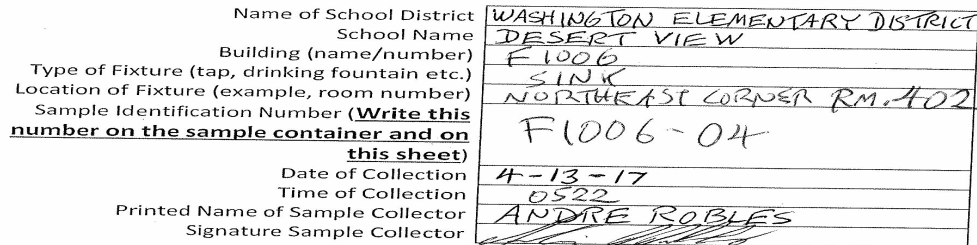 Name of School District WASHINGTON ELEMENTARY DISTRICT
School Name DESERT VIEW
Building (name/number) F1006
Type of Fixture (tap, drinking fountain etc.) SINK
Location of Fixture (example, room number) NORTHEAST CORNER RM.402
Sample Identification Number (Write this
number on the sample container and on
this sheet) F1006-04
Date of Collection 4-13-17
Time of Collection 0522
Printed Name of Sample Collector ANDRE ROBLES
Signature Sample Collector